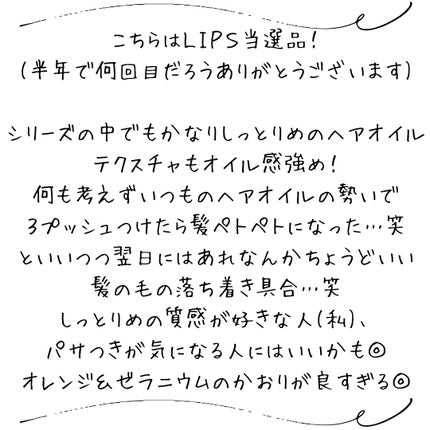 こちらはLIPS当選品!
(半年で何回目だろうありがとうございます)
シリーズの中でもかなりしっとりめのヘアオイル
テクスチャもオイル感強め!
何も考えずいつものヘアオイルの勢いで
3プッシュつけたら髪ペトペトになった…笑
といいつつ翌日にはあれなんかちょうどいい
髪のもの落ち着き具合…笑
しっとりめの質感が好きな人(私)、
パサつきが気になる人にはいいかも◎
オレンジ&ゼラニウムのかおりが良すぎる◎